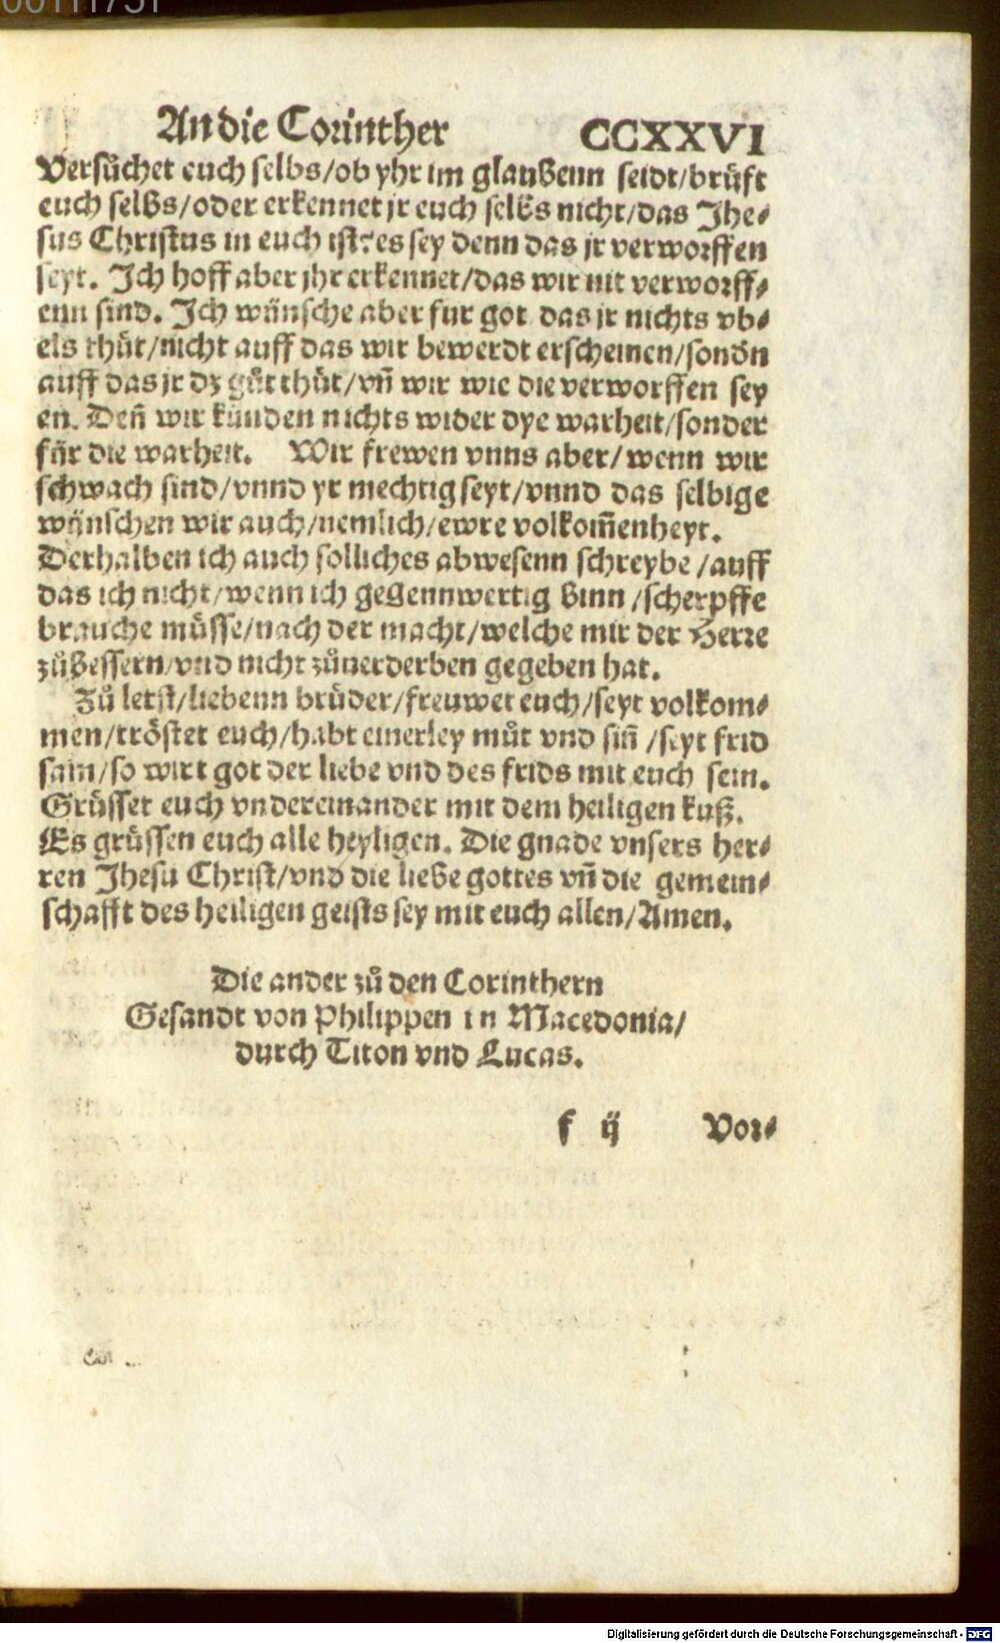 An die Corinther CCXXVI
Versůchet euch selbs/ob yhr im glaubenn seidt/brüft
euch selbs/oder erkennet jr euch selbs nicht/das Jhe⸗
sus Christus in euch ist? es sey denn das jr verworffen
seyt. Jch hoff aber jhr erkennet/das wir nit verworff⸗
enn sind. Jch wünsche aber fur got das jr nichts vb⸗
els thüt/nicht auff das wir bewerdt erscheinen/sondn̄
auff das jr dz gůt thüt/vn̄ wir wie die verworffen sey
en. Den̄ wir künden nichts wider dye warheit/sonder
für die warheit. Wir frewen vnns aber/wenn wir
schwach sind/vnnd yr mechtig seyt/vnnd das selbige
wünschen wir auch/nemlich/ewre volkom̄enheyt.
Derhalben ich auch solliches abwesenn schreybe/auff
das ich nicht/wenn ich gegennwertig binn/scherpffe
brauche müsse/nach der macht/welche mir der Herre
zůbessern/vnd nicht zůuerderben gegeben hat.
Zů letst/liebenn brüder/freuwet euch/seyt volkom⸗
men/tröstet euch/habt einerley můt vnd sin̄/seyt frid
sam/so wirt got der liebe vnd des frids mit euch sein.
Grüsset euch vndereinander mit dem heiligen kuß.
Es grüssen euch alle heyligen. Die gnade vnsers her⸗
ren Jhesu Christ/vnd die liebe gottes vn̄ die gemein⸗
schafft des heiligen geists sey mit euch allen/Amen.
Die ander zů den Corinthern
Gesandt von Philippen in Macedonia/
durch Titon vnd Lucas.
f ij Vor⸗
Digitalisierung gefördert durch die Deutsche Forschungsgemeinschaft - DFG